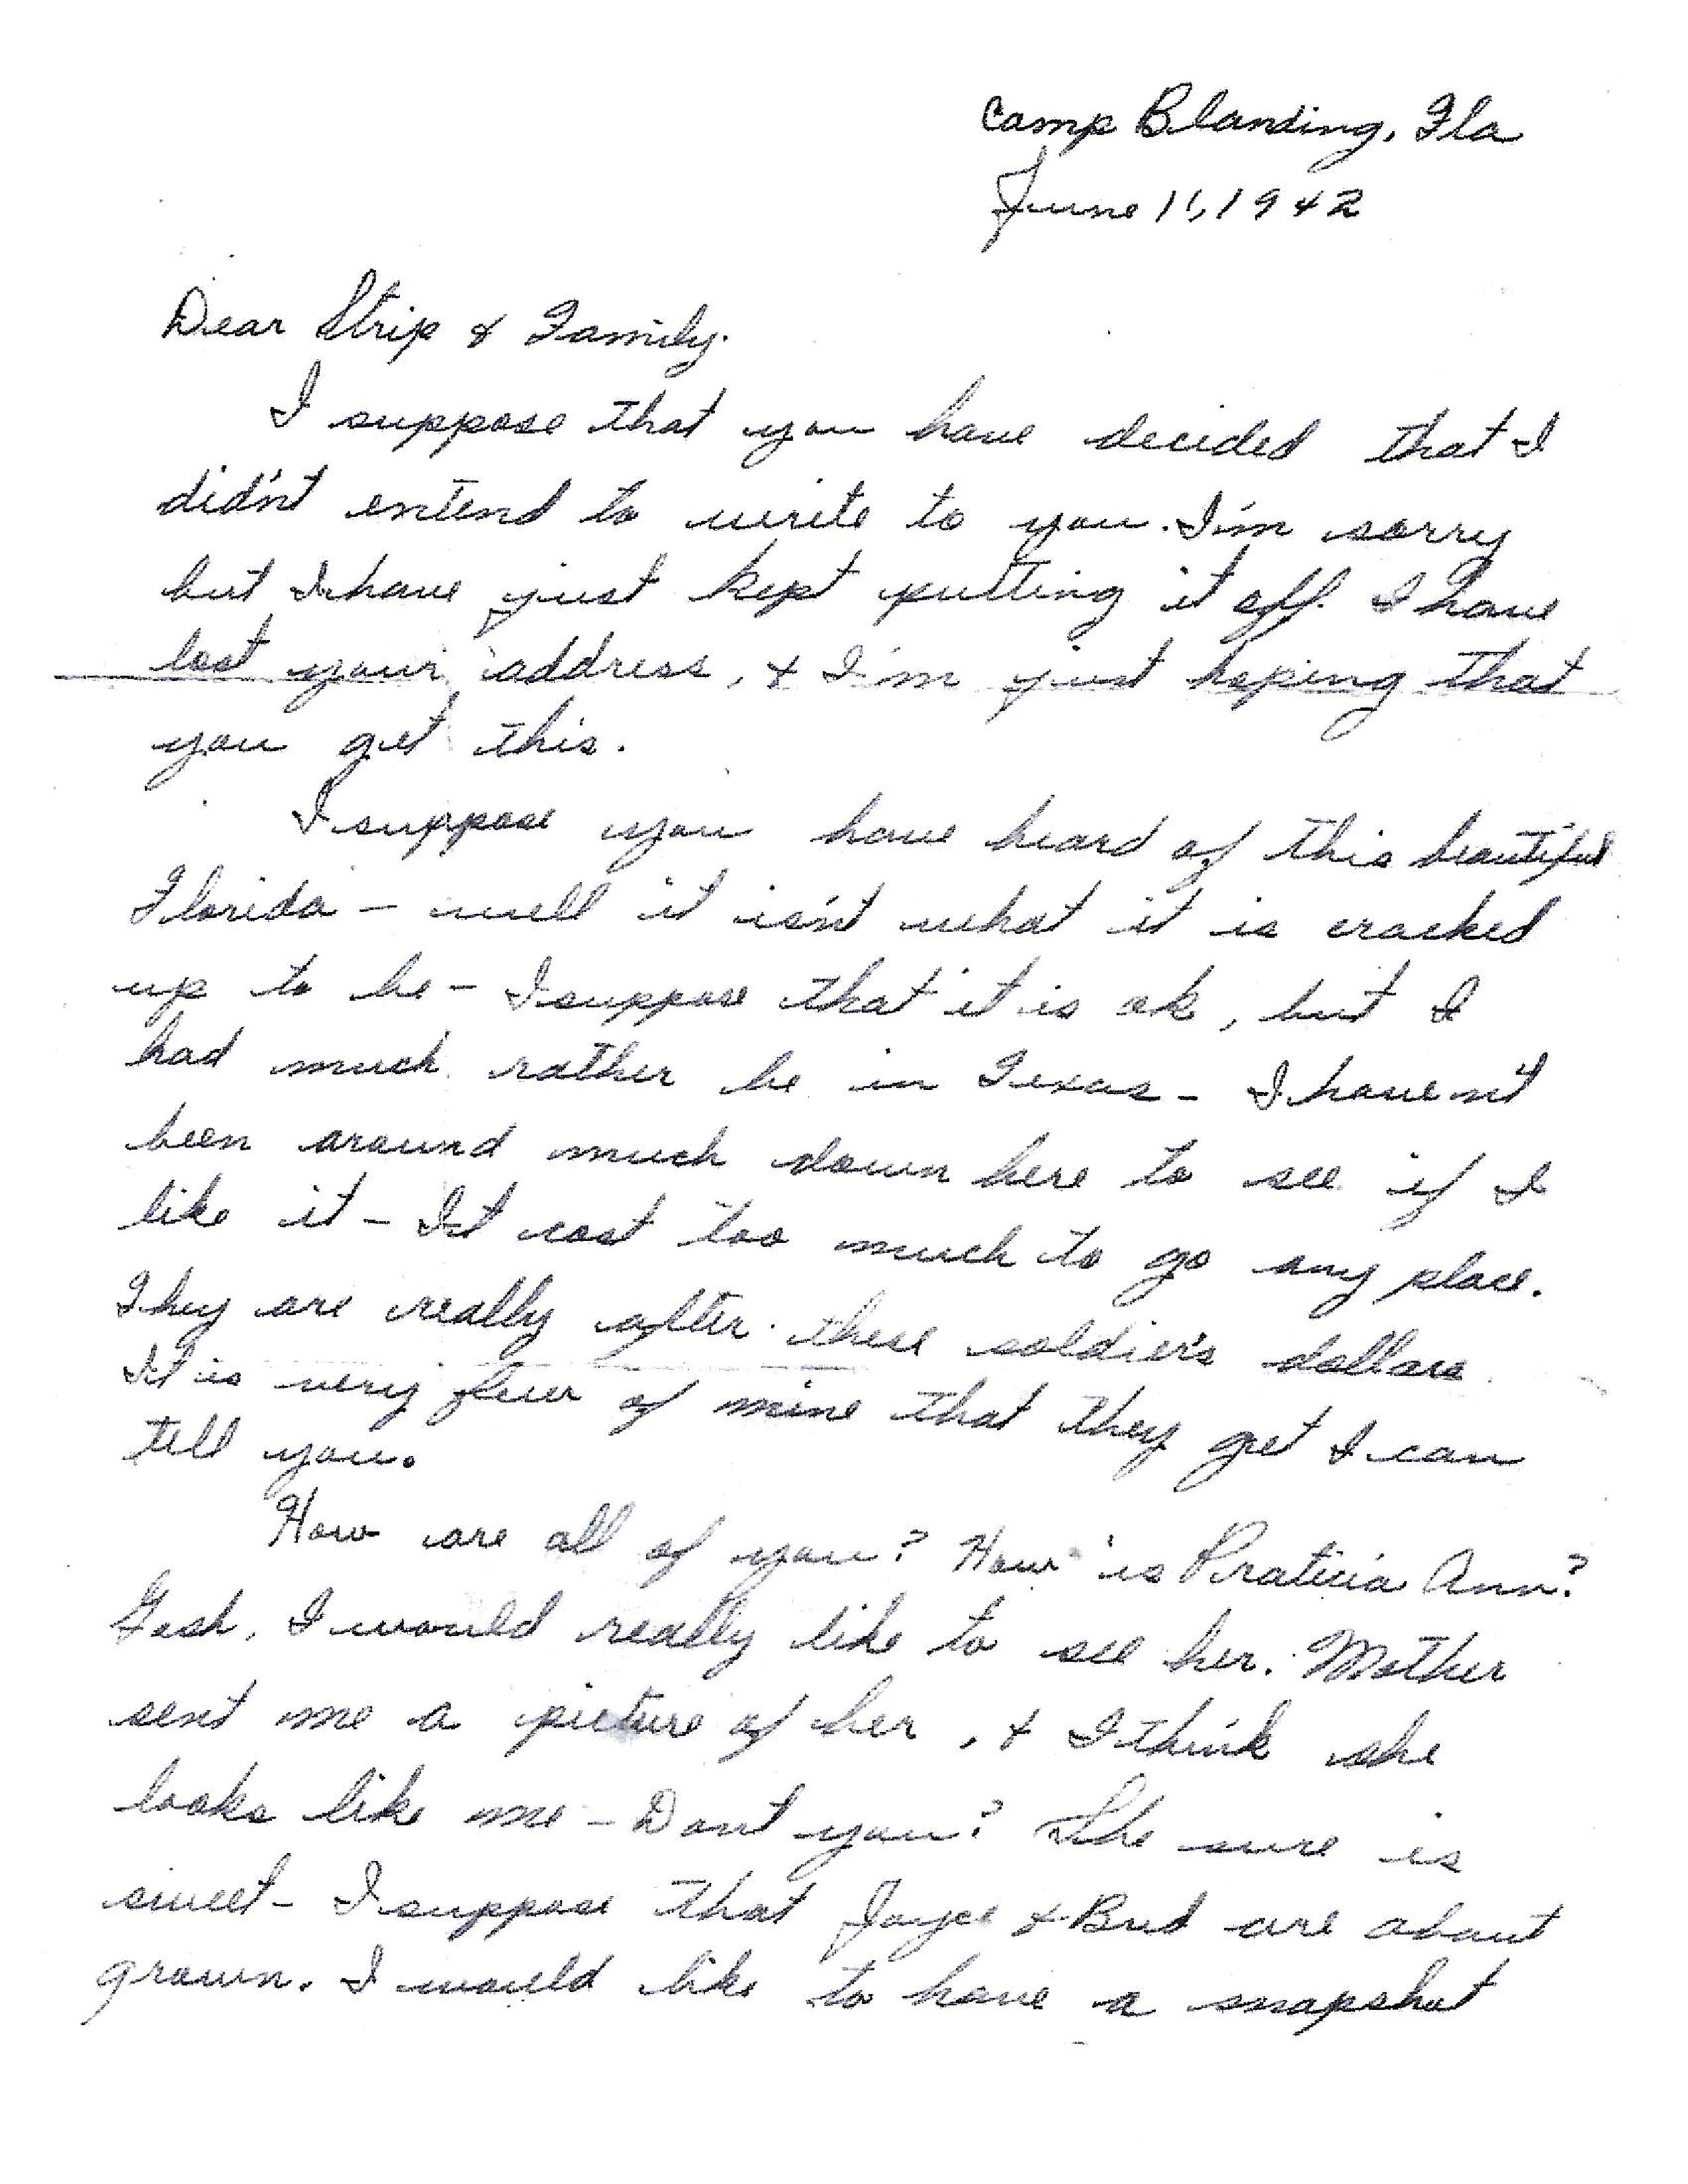 Camp Blanding, Fla
June 11, 1942
Dear Strip & Family.
I suppose that you have decided that I
didn't entend to write to you. I'm sorry
but I have just kept putting it off. I have
lost your address, & I'm just hoping that
you get this.
I suppose you have heard of this beautiful
Florida - well it isn't what it is cracked
up to be - I suppose that it is ok, but I
had much rather be in Texas - I haven't
been around much down here to see if I
like it - It cost too much to go any place.
They are really after these soldier's dollars
It is very few of mine that they get I can
tell you.
How are all of you? How is Praticia Ann?
Gosh, I would really like to see her. Mother
sent me a picture of her, & I think she
looks like me - Dont you? She sure is
sweet - I suppose that Joyce & Bud are about
grown. I would like to have a snapshot